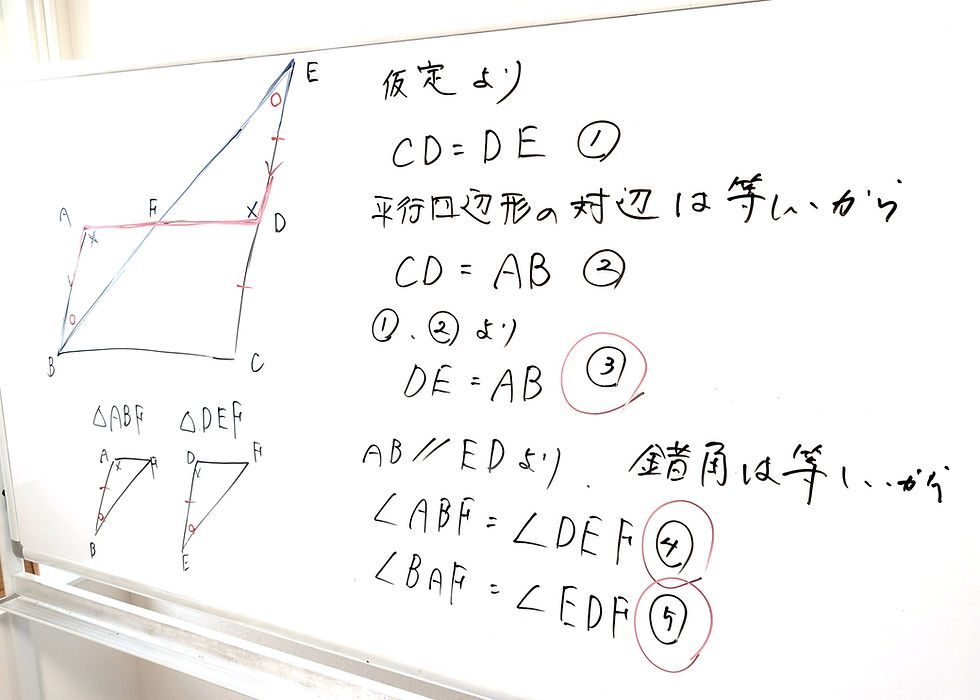 仮定より
CD=DE ①
平行四辺形の対辺は等しいから
CD=AB ②
①、②より
DE=AB ③
AB//EDより、錯角は等しいから
∠ABF=∠DEF ④
∠BAF=∠EDF ⑤
E
A F × D
×
B C
△ABF △DEF
A F D F
× ×
B E